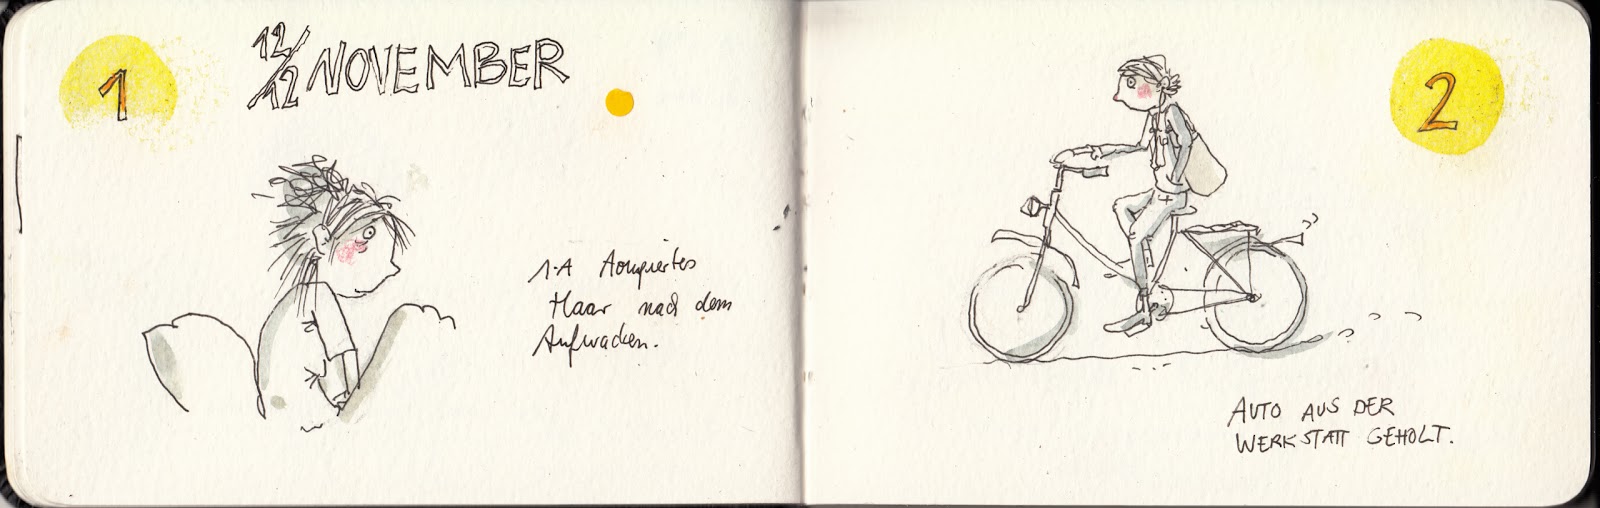 1
12/12 NOVEMBER
1-A toupiertes
Haar nach dem
Aufwachen.
2
AUTO AUS DER
WERKSTATT GEHOLT.